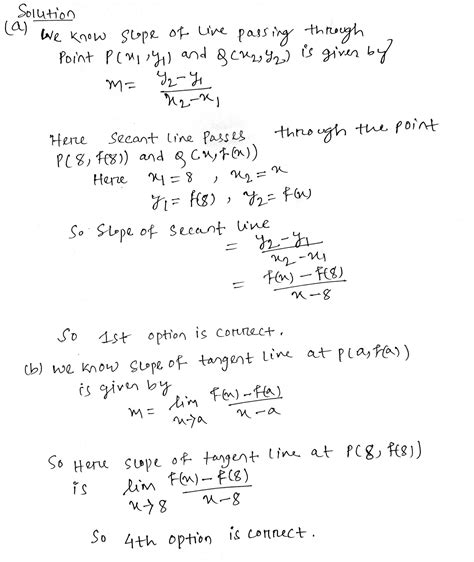 Solution
(a) we know slope of line passing through
Point P(x₁,y₁) and Q(x₂,y₂) is given by
m = y₂-y₁ / x₂-x₁
Here Secant line Passes through the point
P(8, f(8)) and Q(x, f(x))
Here x₁ = 8 , x₂ = x
y₁ = f(8) , y₂ = f(x)
So Slope of secant line
= y₂-y₁ / x₂-x₁
= f(x) - f(8) / x-8
So 1st option is correct.
(b) we know slope of tangent line at P(a, f(a))
is given by
m = lim x→a f(x)-f(a) / x-a
So Here slope of tangent line at P(8, f(8))
is lim x→8 f(x)-f(8) / x-8
So 4th option is correct.